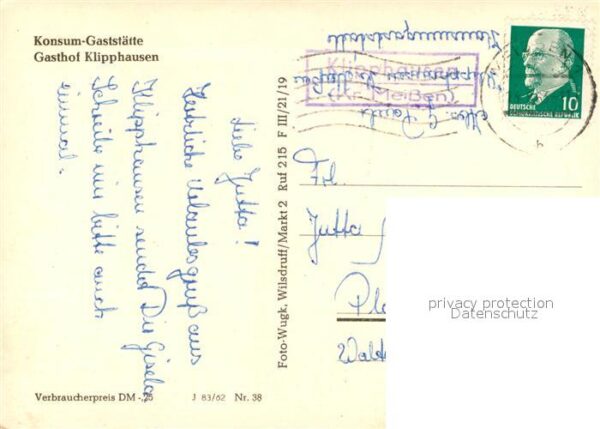 Konsum-Gaststätte
Gasthof Klipphausen
Klipphausen
(Kr. Meißen)
DEUTSCHE
DEMOKRATISCHE REPUBLIK
10
Liebe Jutta!
Herzliche Urlaubsgrüße aus
Klipphausen sendet Dir Gisela.
Schreibe mir bitte auch
einmal.
Foto-Wugk, Wilsdruff/Markt 2 Ruf 215 F III/21/19
Frl.
Jutta
Pl
Wald
privacy protection
Datenschutz
Verbraucherpreis DM -,20 J 83/62 Nr. 38